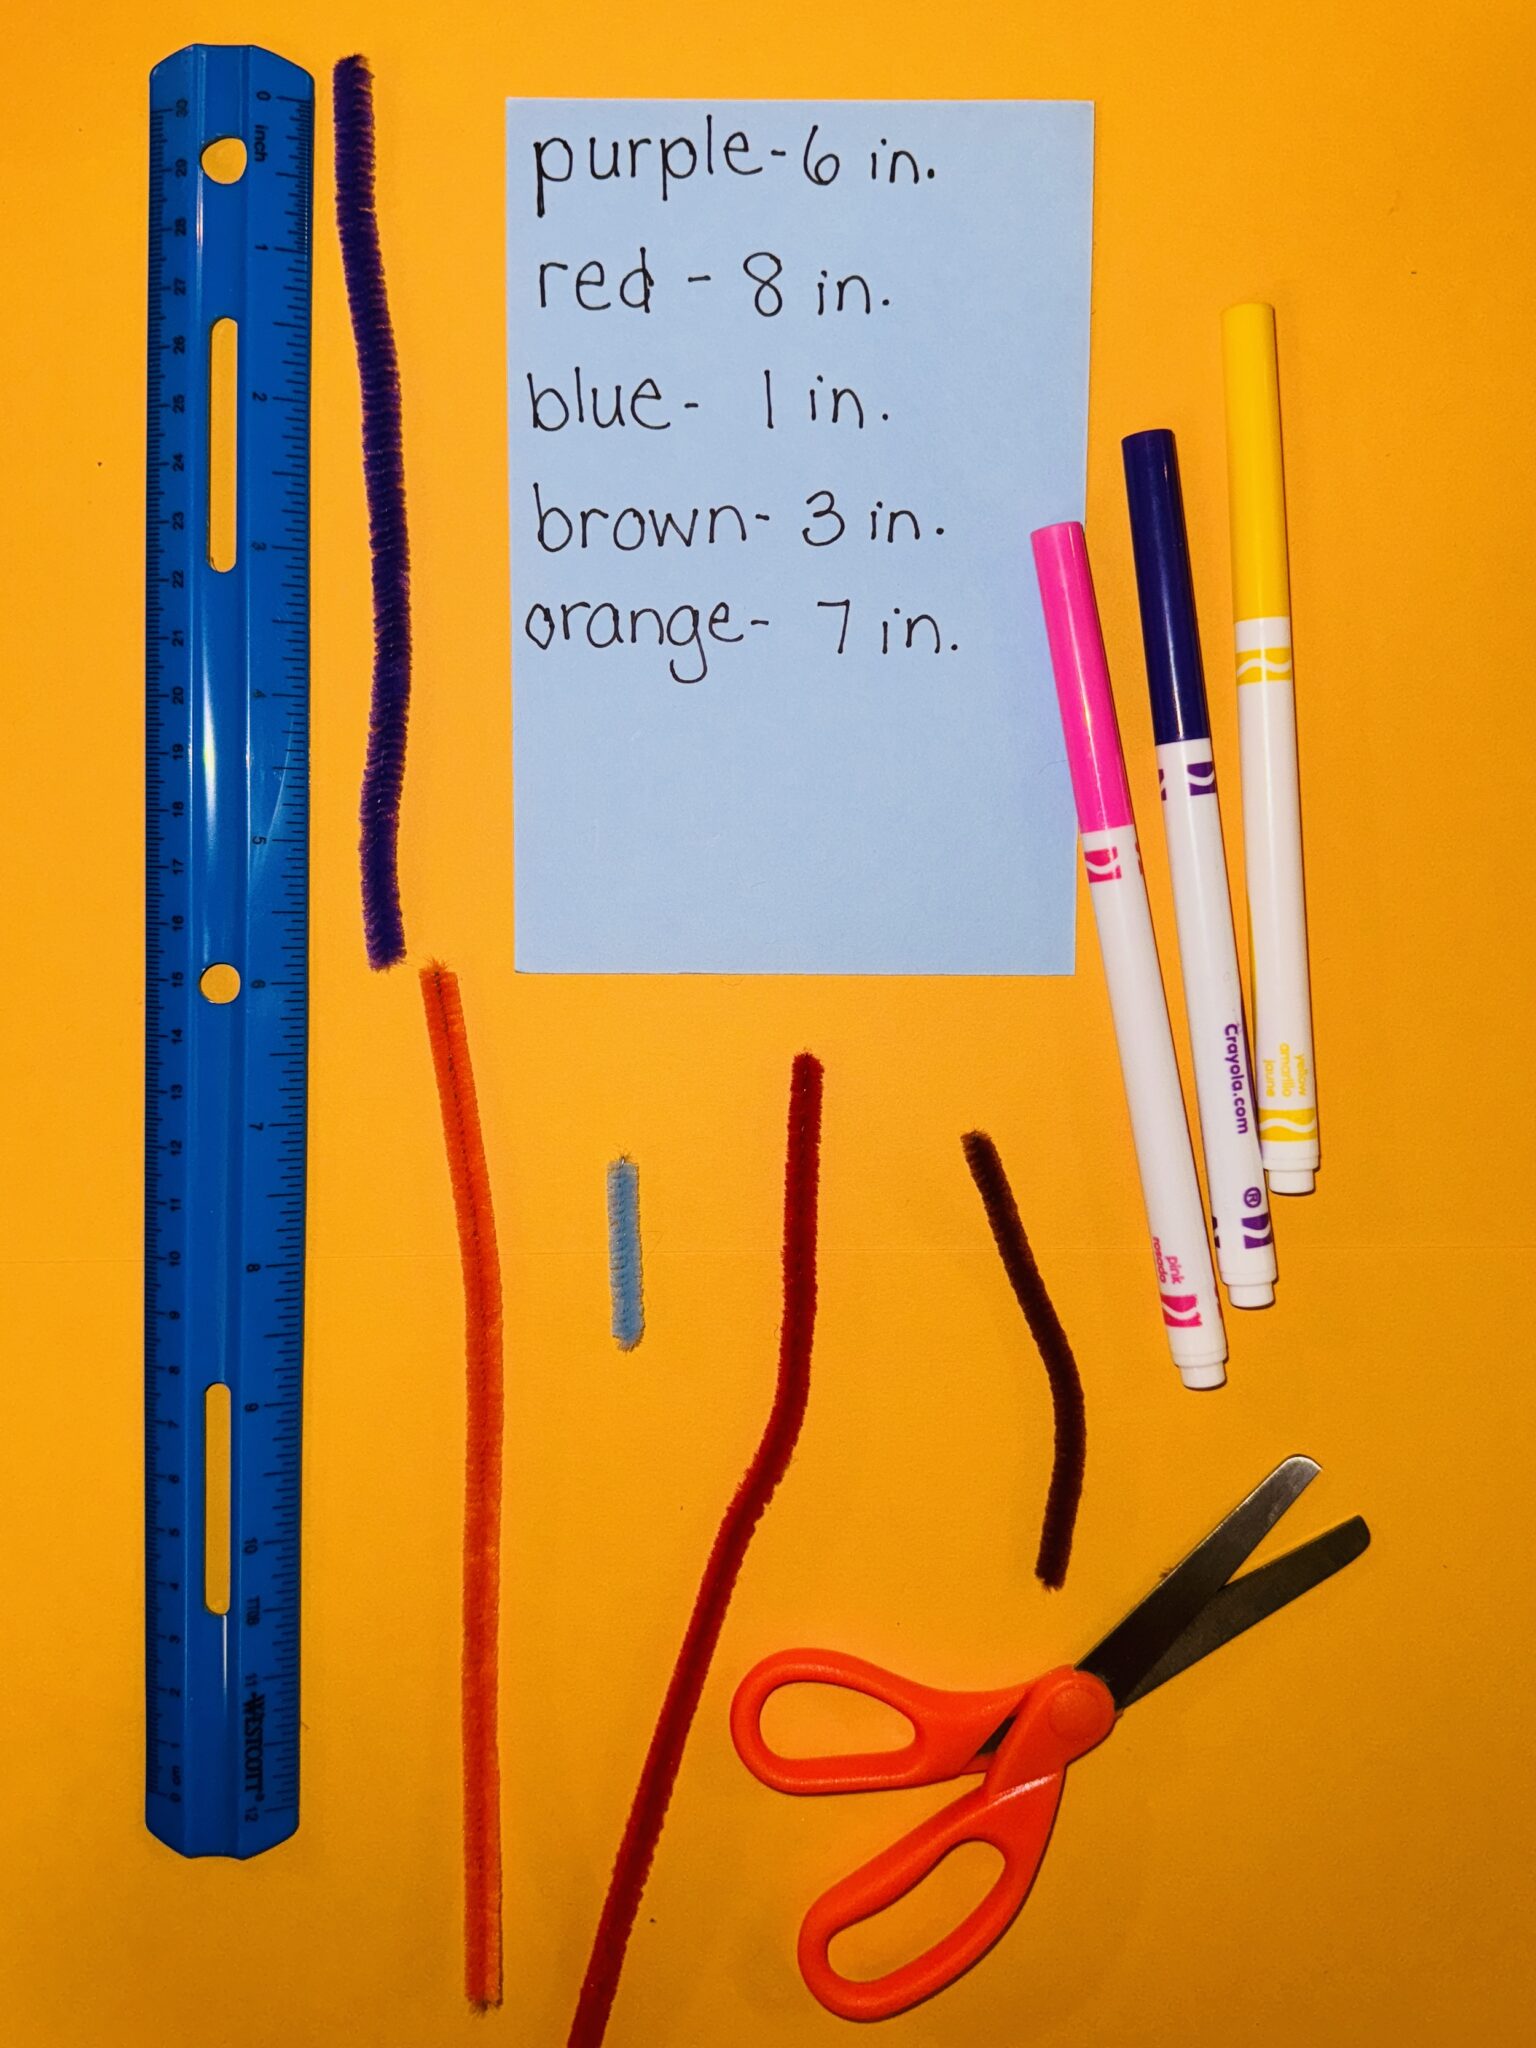 purple- 6 in.
red - 8 in.
blue- 1 in.
brown- 3 in.
orange- 7 in.
0 inch 1 2 3 4 5 6 7 8 9 10 11 12
WESTCOTT®
30 29 28 27 26 25 24 23 22 21 20 19 18 17 16 15 14 13 12 11 10 9 8 7 6 5 4 3 2 1 cm 0
pink
rosado
Crayola.com
®
yellow
amarillo
jaune